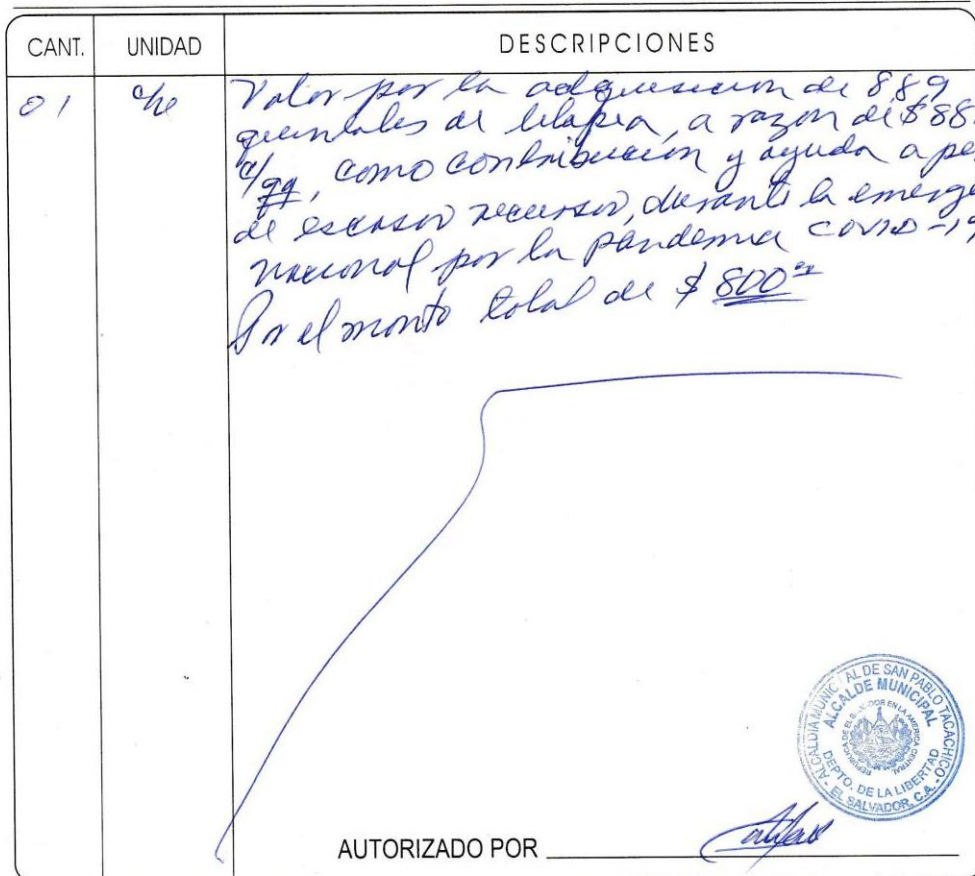 CANT. UNIDAD DESCRIPCIONES
01 Valor por la adquisicion de 889
quintales de tilapia, a razon de $88
c/qq, como contribucion y ayuda a pe
de escasos recursos, durante la emerge
nacional por la pandemia covid-19
Por el monto total de $ 800
ALCALDIA MUNICIPAL DE SAN PABLO TACACHICO
ALCALDE MUNICIPAL
REPUBLICA DE EL SALVADOR EN LA AMERICA CENTRAL
DEPTO. DE LA LIBERTAD
EL SALVADOR, C.A.
AUTORIZADO POR